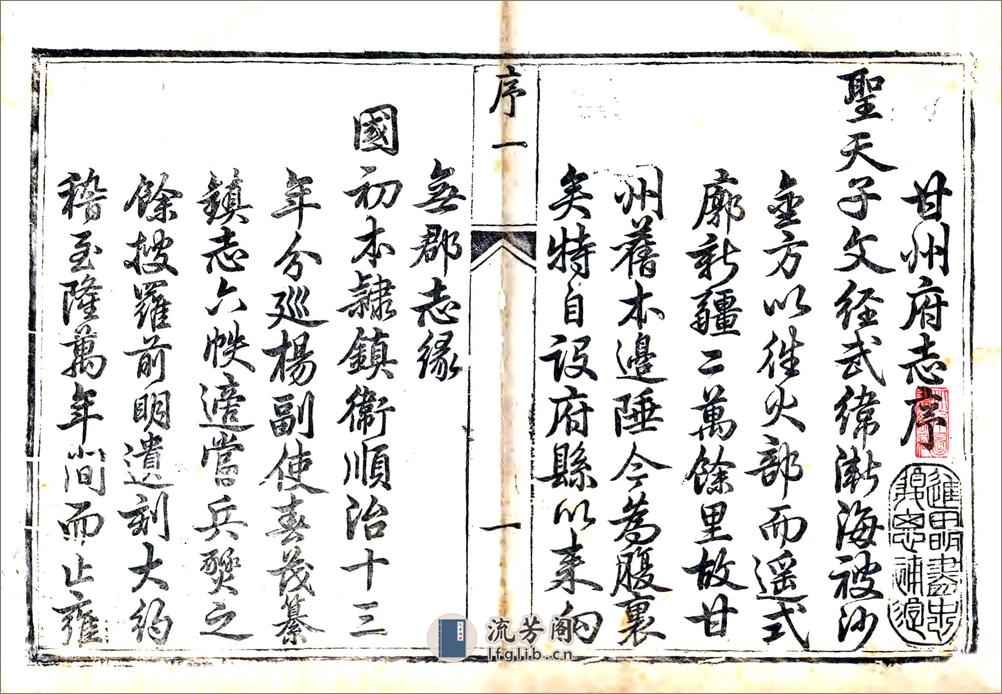 甘州府志序
進思盡忠
退思補過
聖天子文経武緯漸海被沙
金方以往火部而遥式
廓新疆二萬餘里故甘
州舊本邊陲今為腹裏
矣特自設府縣以来向
序一
一
無郡志緣
國初本隸鎮衛順治十三
年分廵楊副使春茂纂
鎮志六帙適當兵燹之
餘搜羅前明遺刻大約
稽至隆萬年間而止雍
流芳阁
lfglib.cn